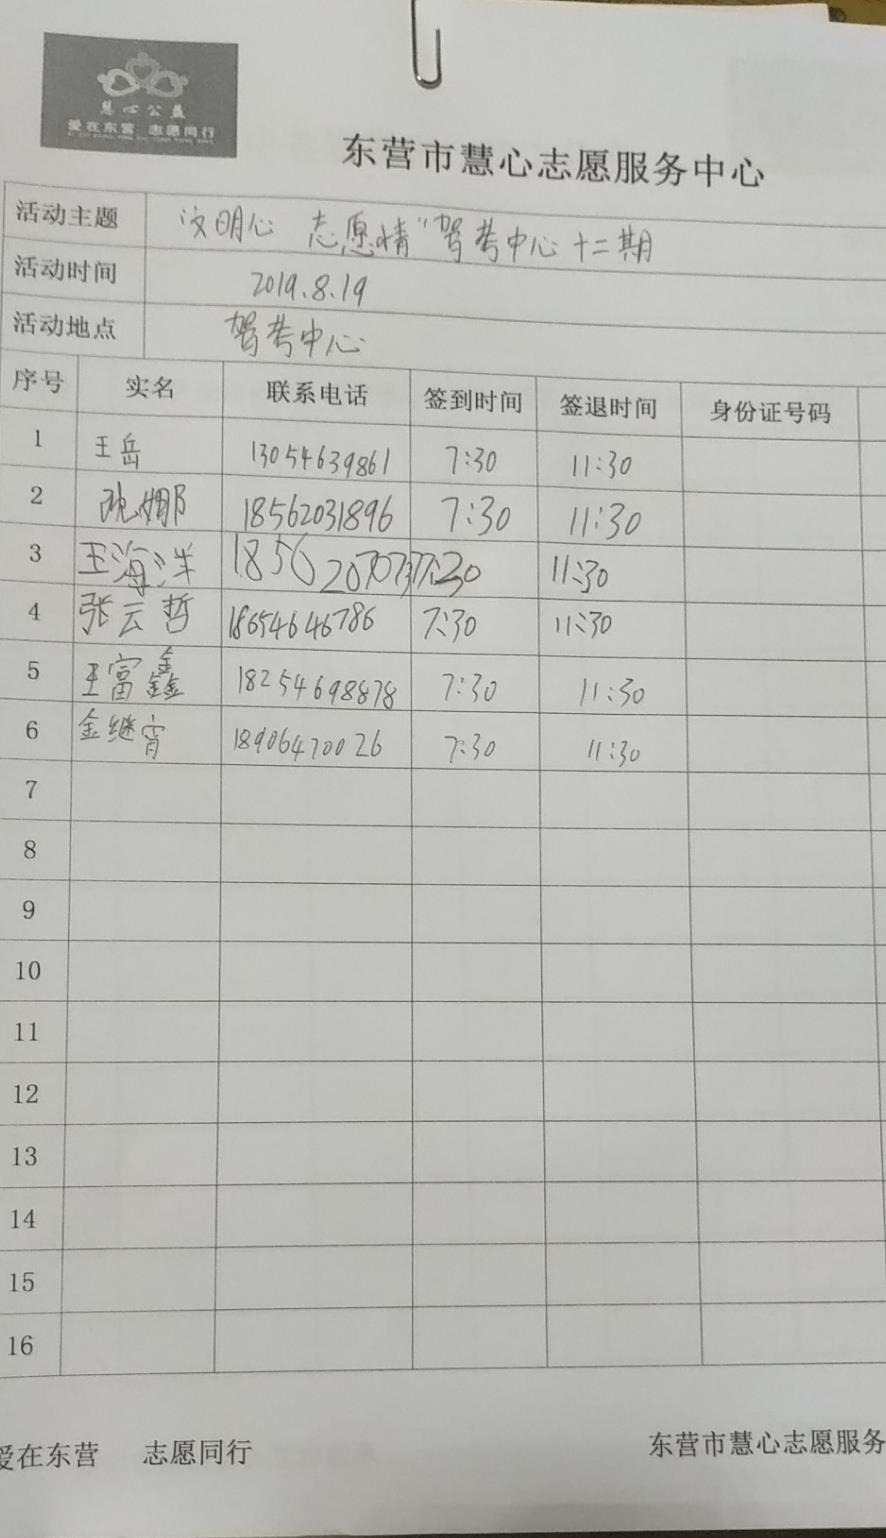 慧心公益
爱在东营 志愿同行
东营市慧心志愿服务中心
活动主题 文明心 志愿情"驾考中心十二期
活动时间 2019.8.19
活动地点 驾考中心
序号 实名 联系电话 签到时间 签退时间 身份证号码
1 王岳 13054639861 7:30 11:30
2 娜 18562031896 7:30 11:30
3 王海洋 7:30 11:30
4 张云哲 18654646786 7:30 11:30
5 王富鑫 18254698878 7:30 11:30
6 金继宵 18906470026 7:30 11:30
7
8
9
10
11
12
13
14
15
16
爱在东营 志愿同行 东营市慧心志愿服务